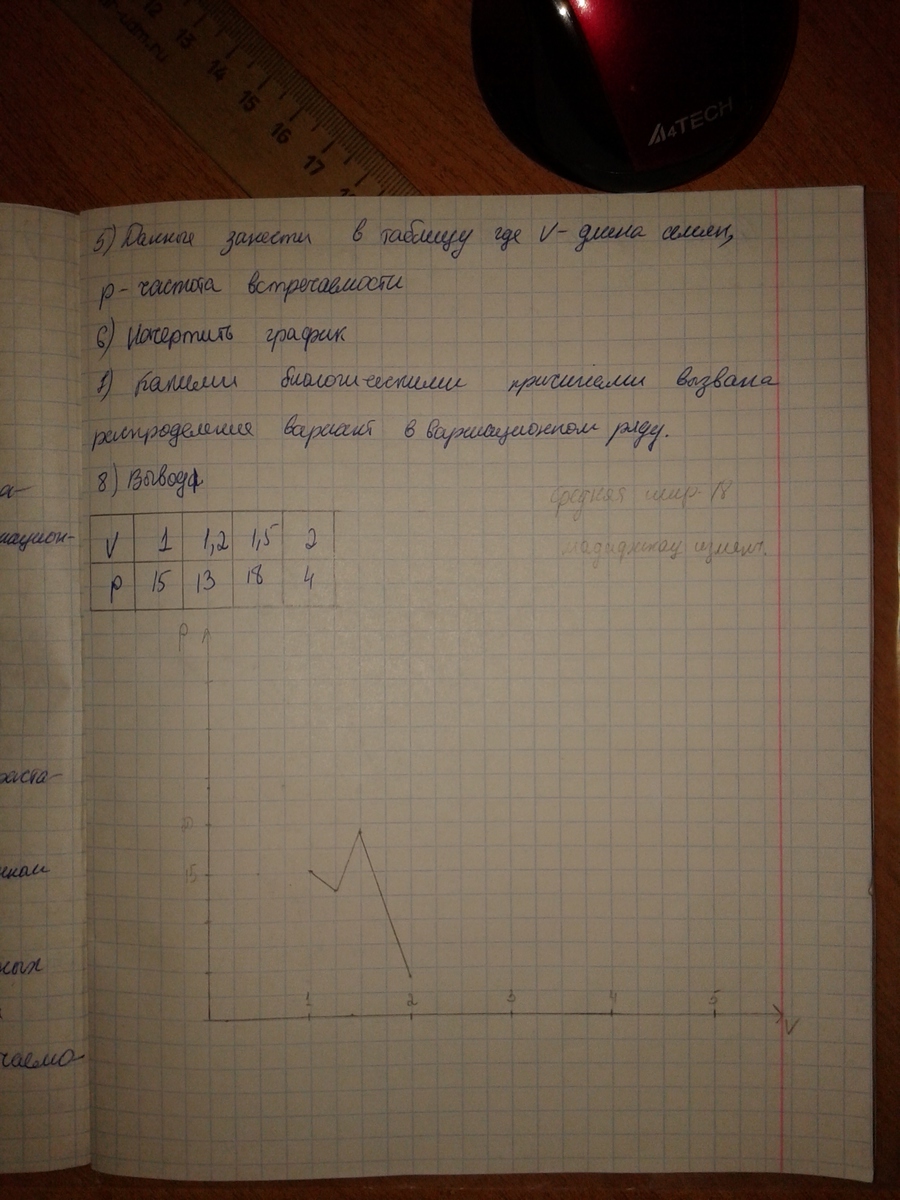 12 13 14 15 16 17
A4TECH
5) Данные занести в таблицу где V- длина семян,
p- частота встречаемости
6) Исчертить график
7) Какими биологическими причинами вызвана
распроделение вариант в вариационном ряду.
8) Вывод
а-
иацион-
средняя шир- 18
V 1 1,2 1,5 2
P 15 13 18 4
P
раста-
15
ных
1 2 3 4 5
V
чаемо-